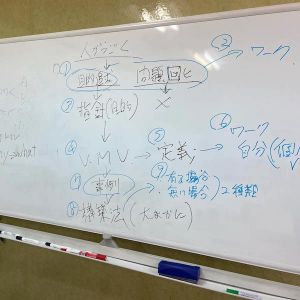 人がうごく
① 目的志 問題回ヒ
② ワーク
③ 指針(目的) ×
④ V.M.V → ⑤ 定義 → ⑥ ワーク 自分(個人
⑦ 事例
⑨ ・有る場合
・無い場合 2種類
⑧ 構築法(大まかに
what